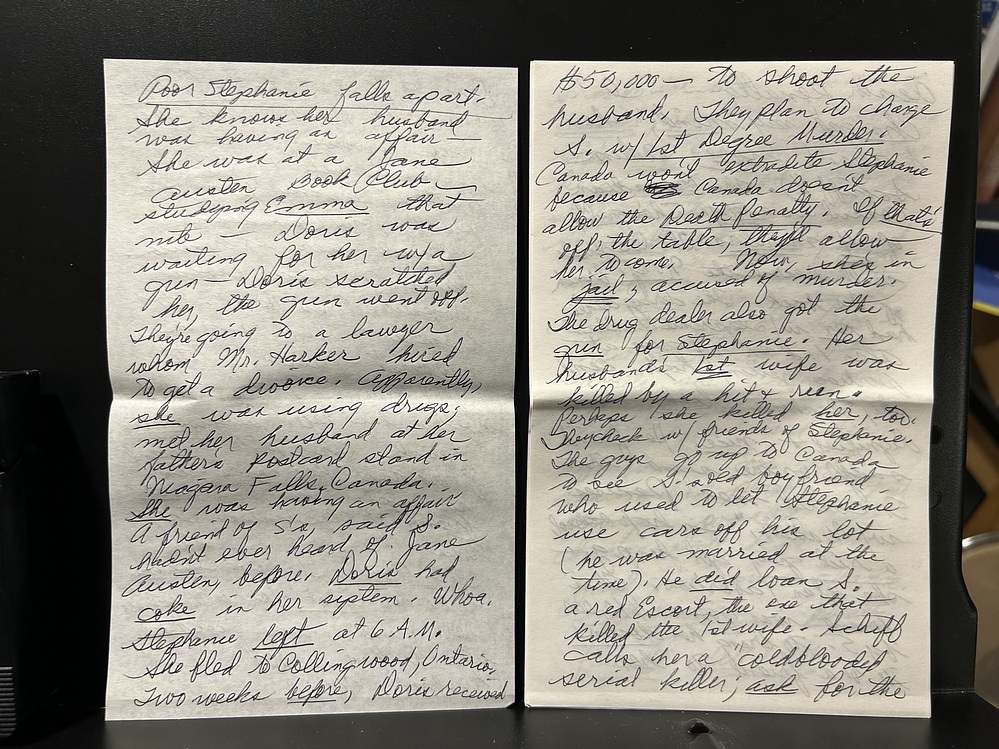 Poor Stephanie falls apart.
She knows her husband
was having an affair
She was at a Jane
Austen Book Club —
studying Emma that
nite — Doris was
waiting for her w/a
gun — Doris scratched
her, the gun went off.
They're going to a lawyer
whom Mr. Harker hired
to get a divorce. Apparently,
she was using drugs;
met her husband at her
father's postcard stand in
Niagara Falls, Canada.
She was having an affair
A friend of S's, said S.
hadn't ever heard of Jane
Austen, before. Doris had
coke in her system. Whoa.
Stephanie left at 6 A.M.
She fled to Collingwood, Ontario.
Two weeks before, Doris received
$50,000 — to shoot the
husband. They plan to charge
S. w/ 1st Degree Murder.
Canada won't extradite Stephanie
because Canada doesn't
allow the Death Penalty. If that's
off, the table, they'll allow
her to come. Now, she's in
jail, accused of murder.
The drug dealer also got the
gun for Stephanie. Her
husband's 1st wife was
killed by a hit & run.
Perhaps she killed her, too.
They check w/ friends of Stephanie.
The guys go up to Canada
to see S.'s old boyfriend
who used to let Stephanie
use cars off his lot
(he was married at the
time). He did loan S.
a red Escort, the one that
killed the 1st wife. Schiff
calls her a "coldblooded
serial killer; ask for the